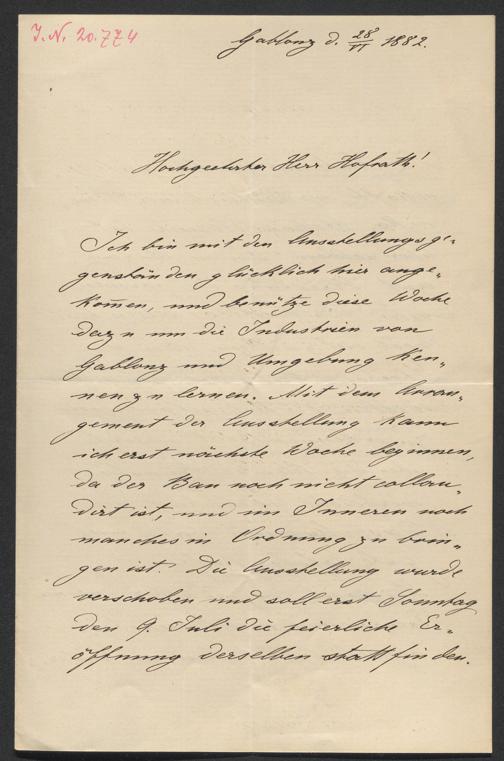 J. N. 20.774
Gablonz d. 28/VI 1882.
Hochgeehrter Herr Hofrath!
Ich bin mit den Ausstellungsge-
genständen glücklich hier ange-
kom̄en, und benütze diese Woche
dazu um die Industrien von
Gablonz und Umgebung ken-
nen zu lernen. Mit dem Arran-
gement der Ausstellung kann
ich erst nächste Woche beginnen,
da der Bau noch nicht collau-
dirt ist, und im Inneren noch
manches in Ordnung zu brin-
gen ist. Die Ausstellung wurde
verschoben und soll erst Sonntag
den 9. Juli die feierliche Er-
öffnung derselben stattfinden.